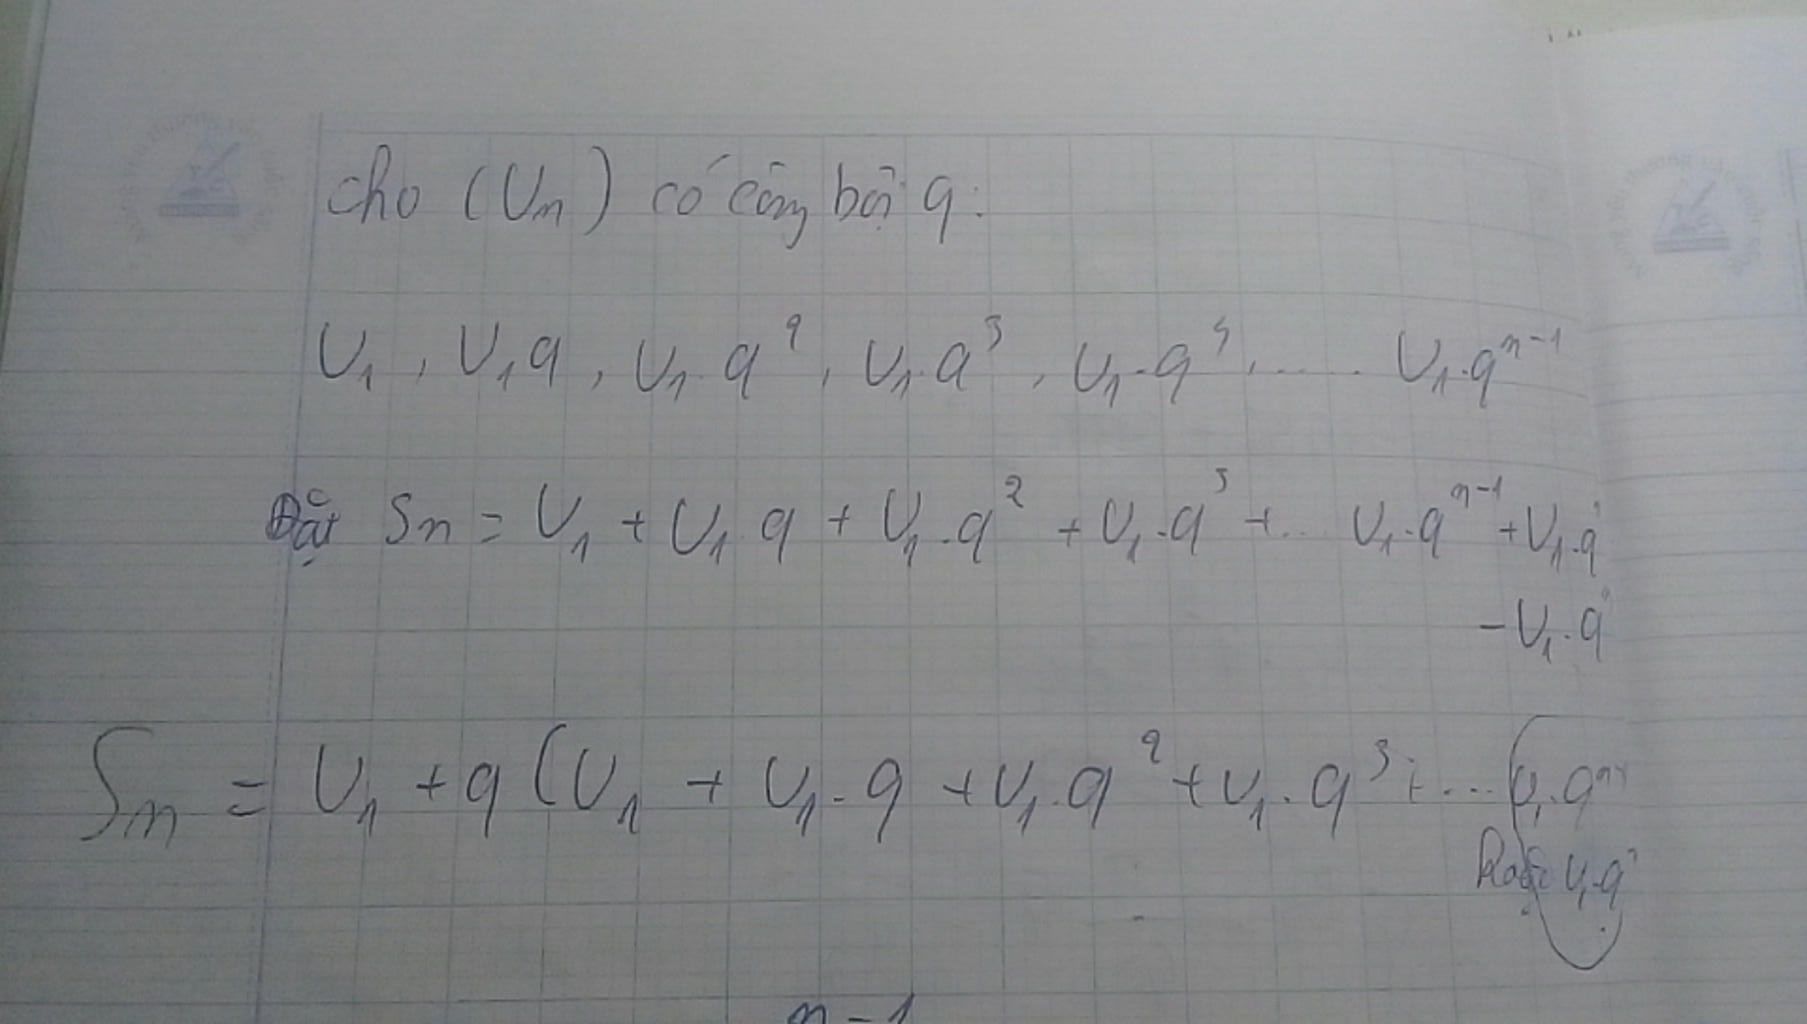 cho (Un) có công bội q:
U₁, U₁q, U₁.q², U₁.q³, U₁.q⁴, ..... U₁.qⁿ⁻¹
Đặt Sn = U₁ + U₁.q + U₁.q² + U₁.q³ + ... U₁.qⁿ⁻¹ + U₁.q
- U₁.q
Sn = U₁ + q (U₁ + U₁.q + U₁.q² + U₁.q³ + ... U₁.q
U₁.q
n-1